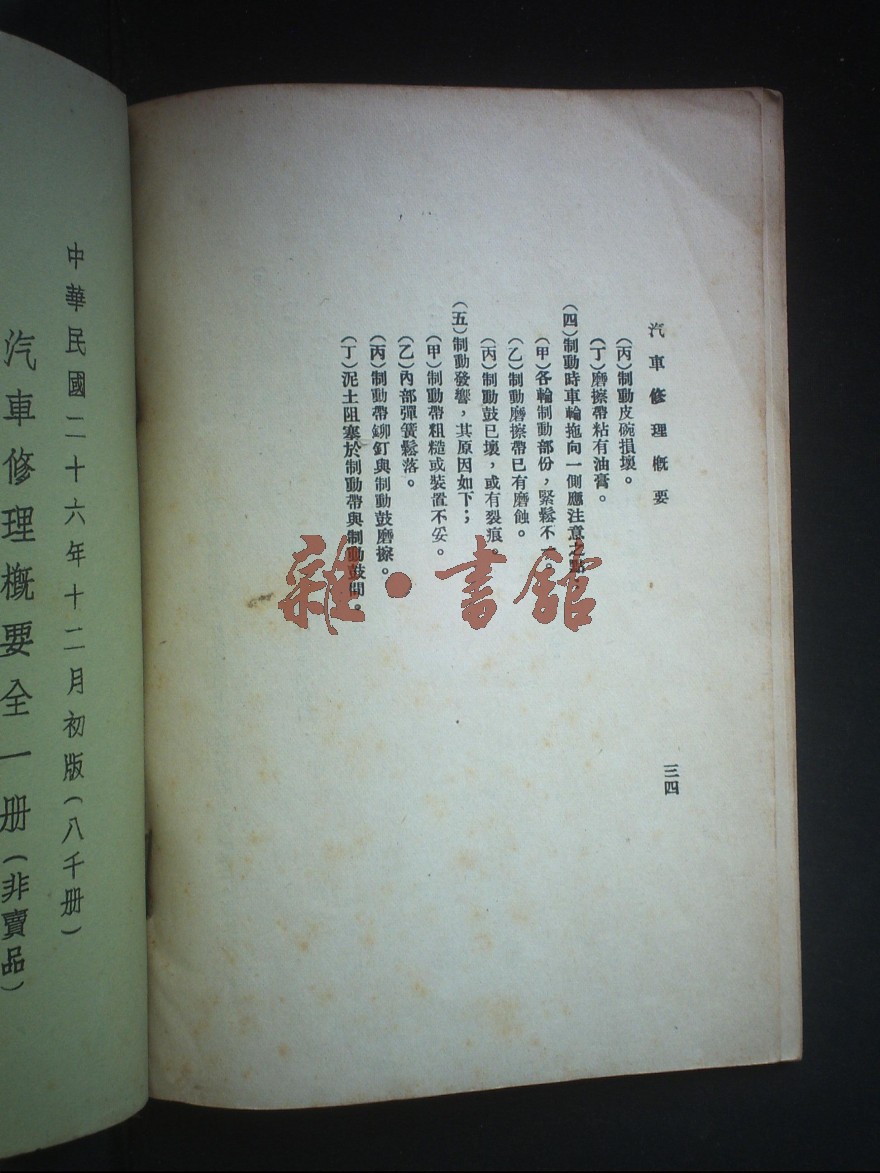 汽車修理概要
(丙)制動皮碗損壞。
(丁)磨擦帶粘有油膏。
(四)制動時車輪拖向一側應注意之點;
(甲)各輪制動部份,緊鬆不一。
(乙)制動磨擦帶已有磨蝕。
(丙)制動鼓已壞,或有裂痕。
(五)制動發響,其原因如下;
(甲)制動帶粗糙或裝置不妥。
(乙)內部彈簧鬆落。
(丙)制動帶鉚釘與制動鼓磨擦。
(丁)泥土阻塞於制動帶與制動鼓間。
三四
雜·書館
中華民國二十六年十二月初版(八千册)
汽車修理概要全一册(非賣品)